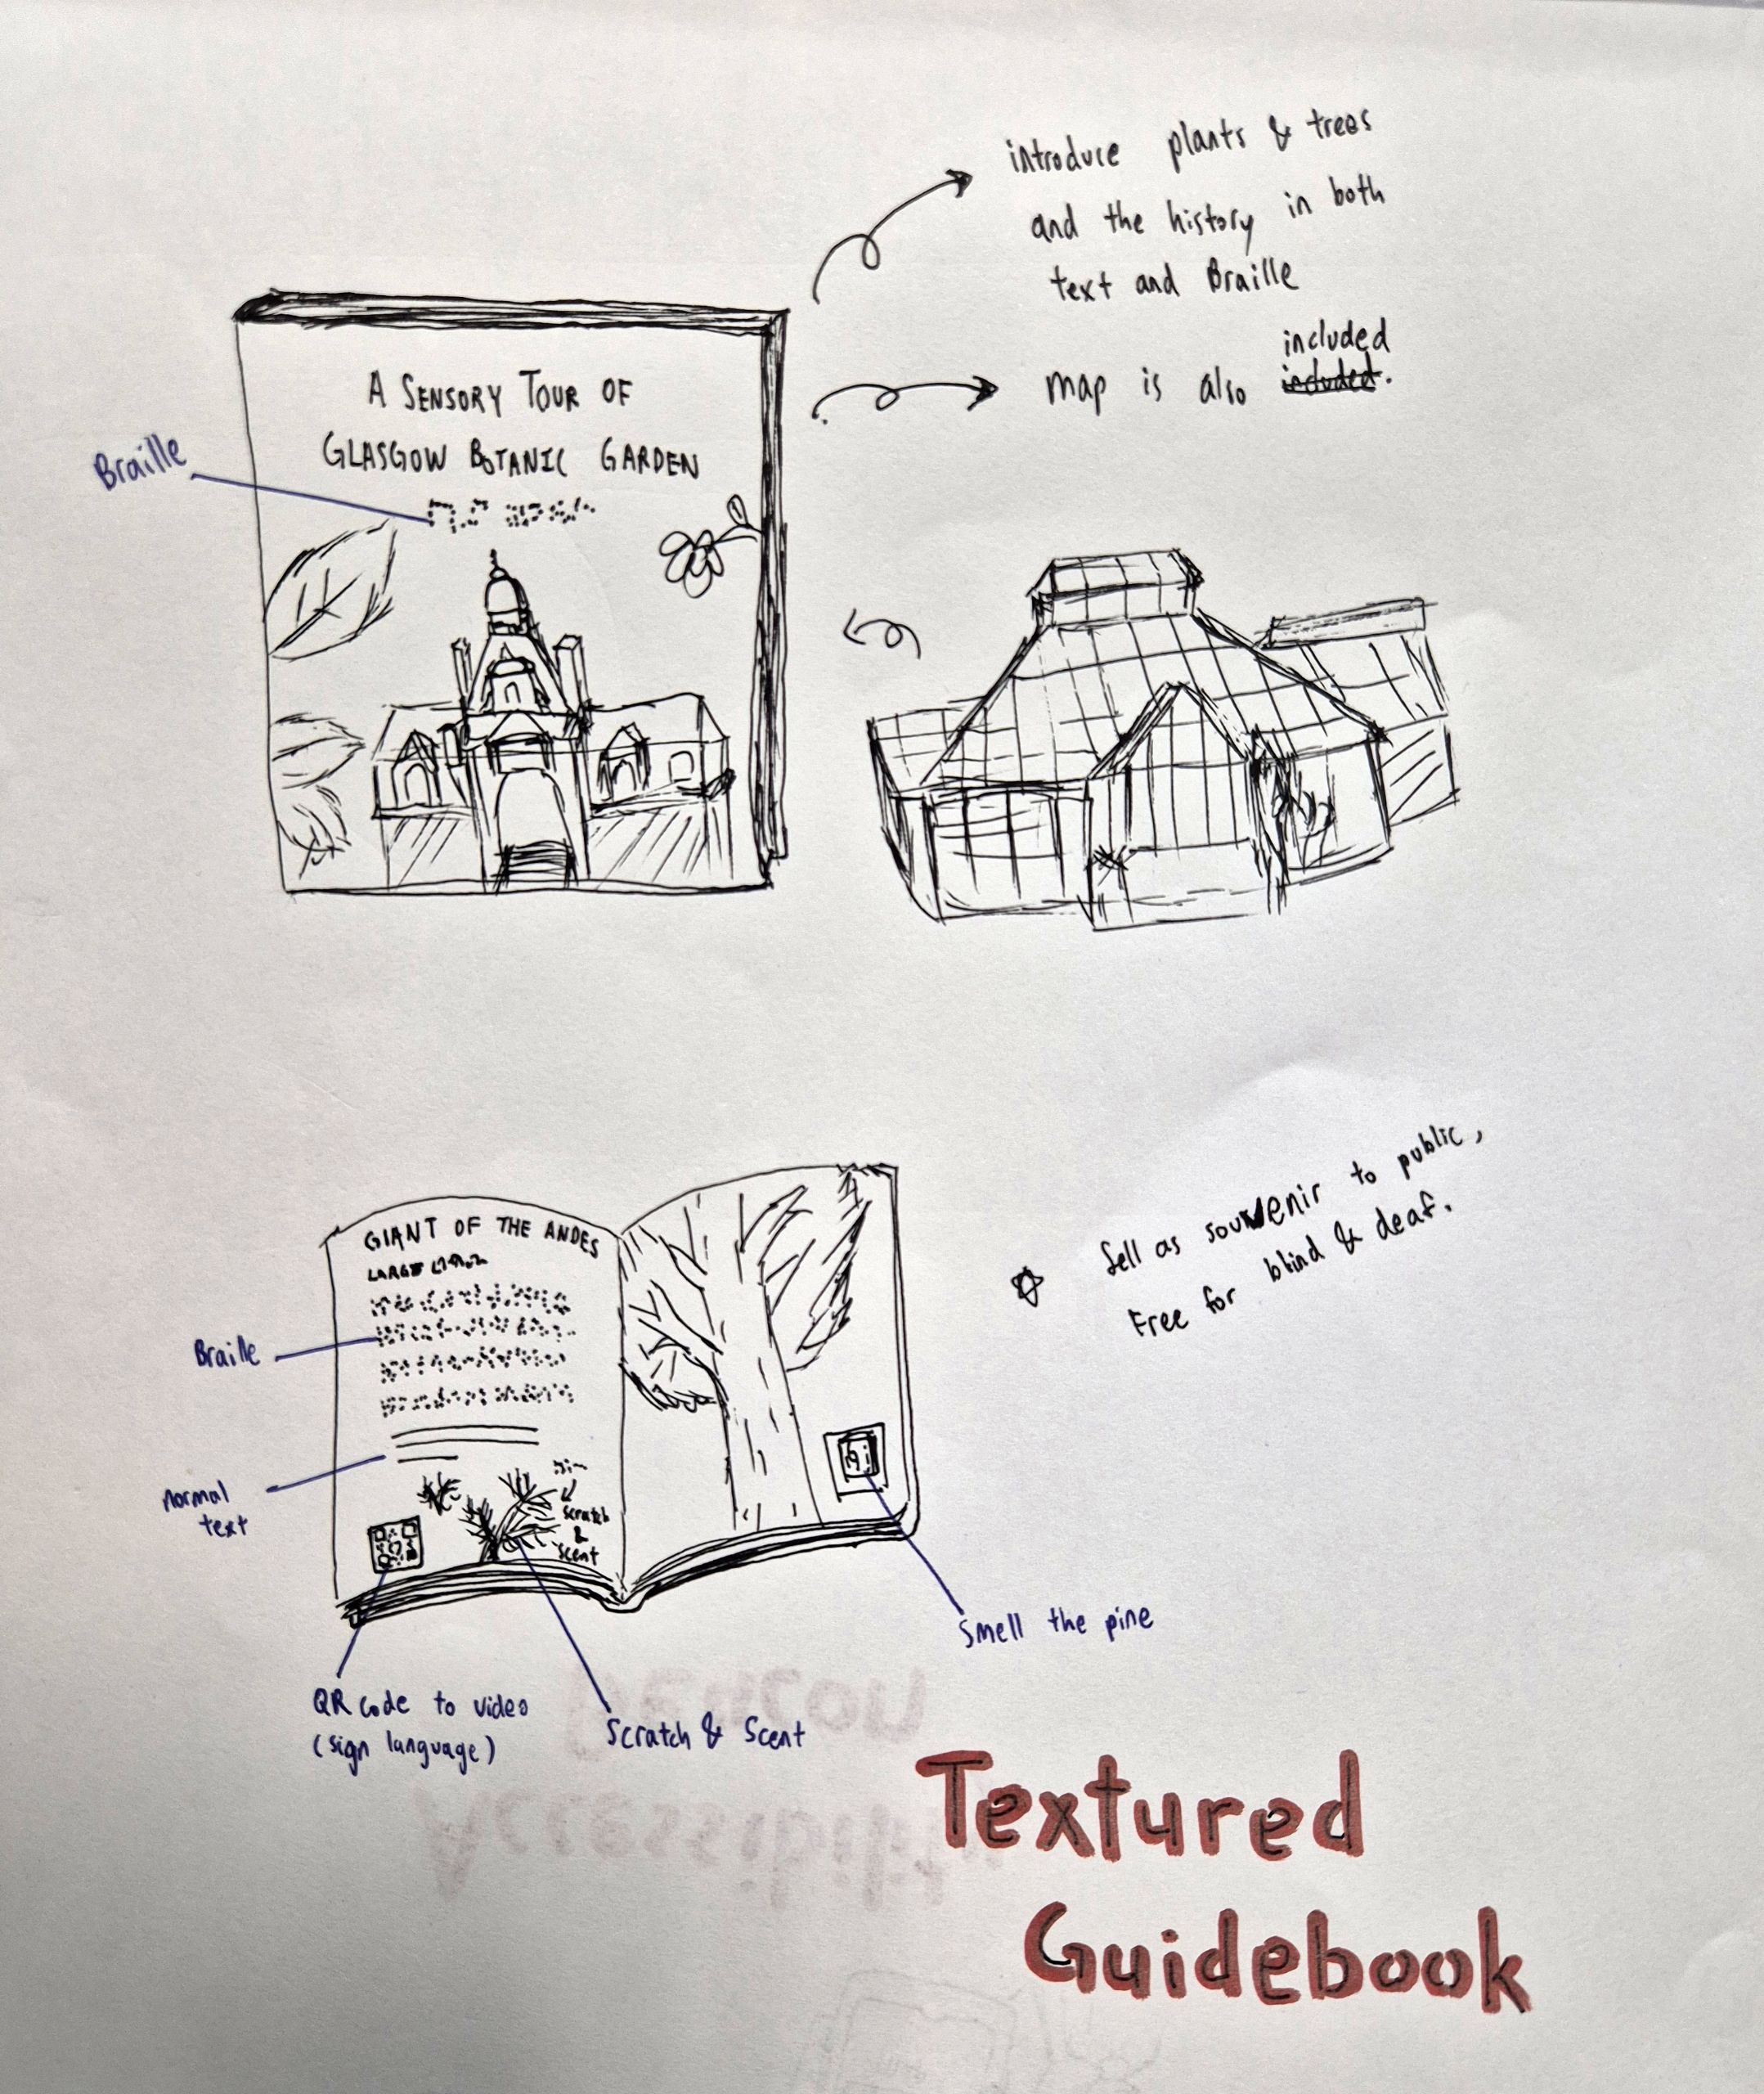 introduce plants & trees
and the history in both
text and Braille
included
map is also included.
A SENSORY TOUR OF
GLASGOW BOTANIC GARDEN
Braille
GIANT OF THE ANDES
LARGE
Braille
normal
text
scratch
&
scent
QR code to video
(sign language)
Scratch & Scent
Smell the pine
Sell as souvenir to public,
Free for blind & deaf.
Textured
Guidebook
Accessibility